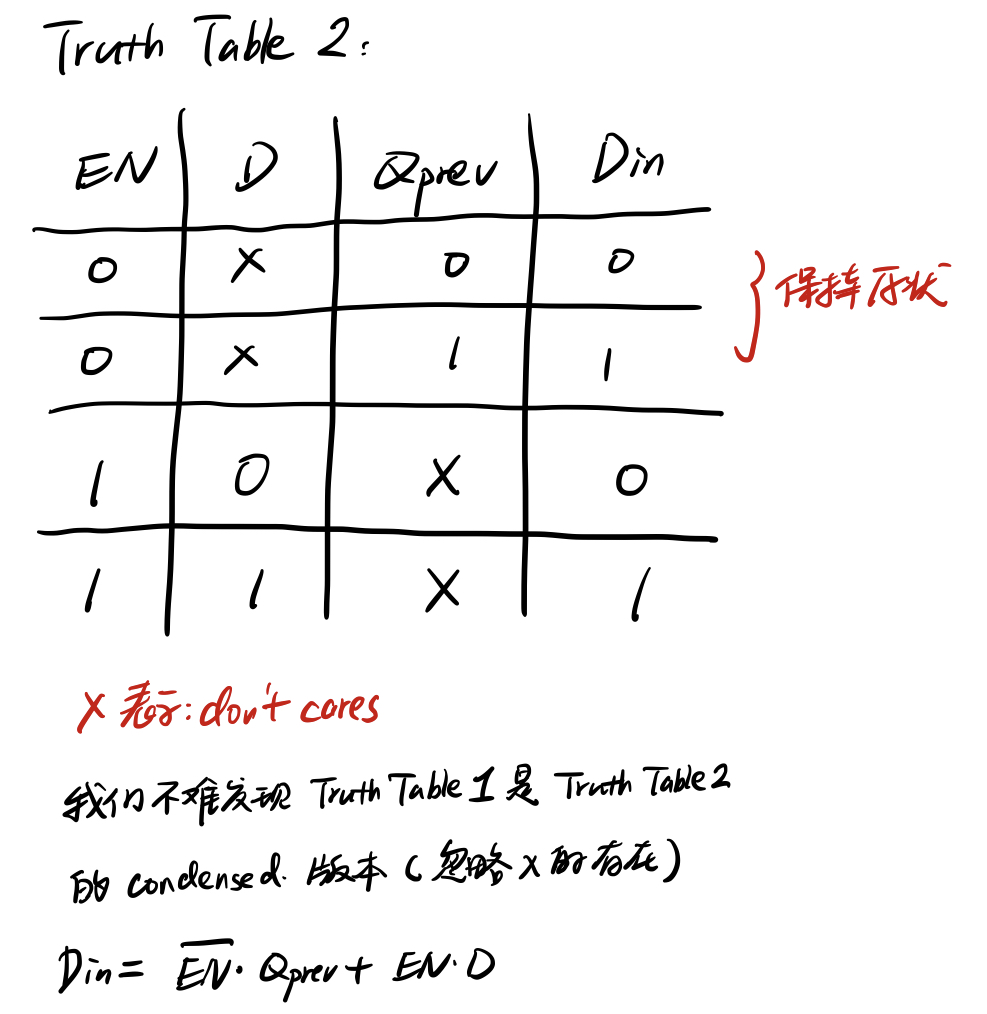 Truth Table 2:
EN D Qprev Din
0 X 0 0
0 X 1 1
保持原状
1 0 X 0
1 1 X 1
X 表示: don't cares
我们不难发现 Truth Table 1 是 Truth Table 2
的 condensed. 版本 (忽略 X 的存在)
Din = \overline{EN}·Qprev + EN·D